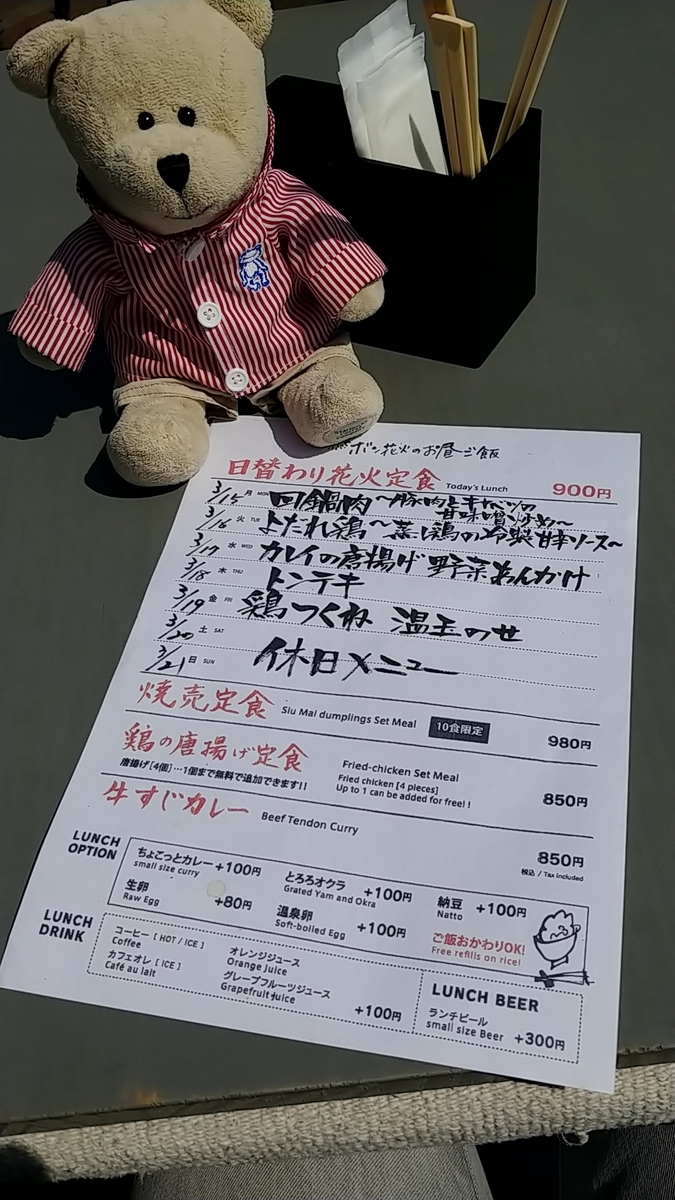 ボン花火のお昼ご飯
日替わり花火定食 Today's Lunch 900円
3/15 月 MON 回鍋肉〜豚肉とキャベツの甘味噌炒め〜
3/16 火 TUE よだれ鶏〜蒸し鶏の冷製甘辛ソース〜
3/17 水 WED カレイの唐揚げ 野菜あんかけ
3/18 木 THU トンテキ
3/19 金 FRI 鶏つくね 温玉のせ
3/20 土 SAT
3/21 日 SUN 休日メニュー
焼売定食 Siu Mai dumplings Set Meal 10食限定 980円
鶏の唐揚げ定食 Fried-chicken Set Meal
唐揚げ[4個]…1個まで無料で追加できます!! Fried chicken [4 pieces]
Up to 1 can be added for free! 850円
牛すじカレー Beef Tendon Curry 850円
税込 / Tax included
LUNCH OPTION
ちょこっとカレー +100円
small size curry
とろろオクラ +100円
Grated Yam and Okra
納豆 +100円
Natto
生卵 +80円
Raw Egg
温泉卵 +100円
Soft-boiled Egg
ご飯おかわりOK!
Free refills on rice!
LUNCH DRINK
コーヒー [ HOT / ICE ]
Coffee
カフェオレ [ ICE ]
Café au lait
オレンジジュース
Orange juice
グレープフルーツジュース
Grapefruit juice +100円
LUNCH BEER
ランチビール
small size Beer +300円